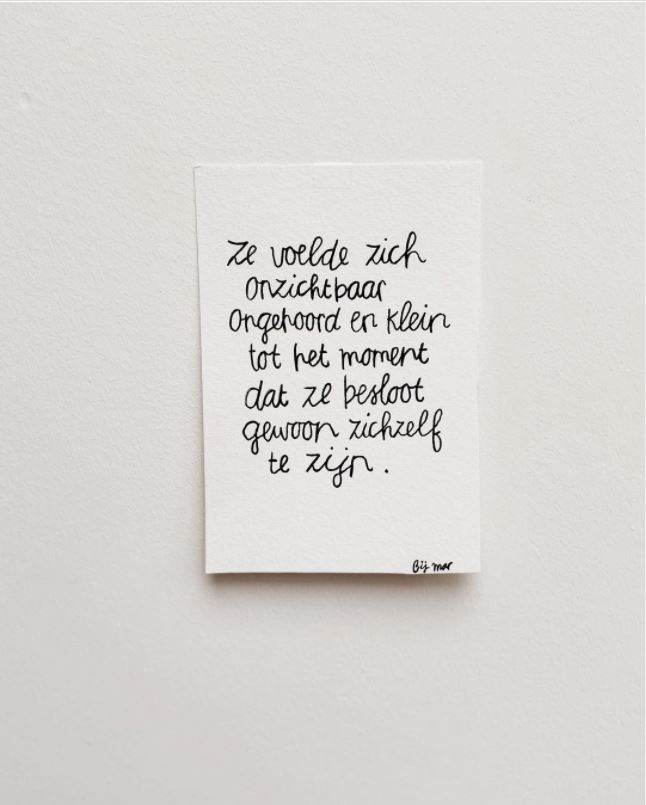 Ze voelde zich
onzichtbaar
Ongehoord en klein
tot het moment
dat ze besloot
gewoon zichzelf
te zijn.
Bij mar